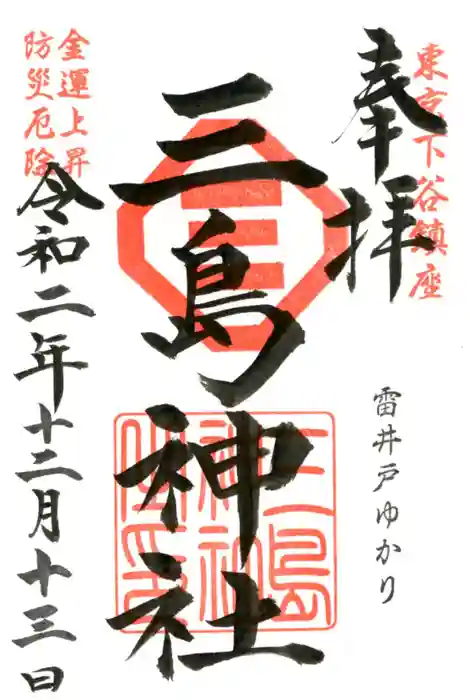 東京下谷鎮座
奉拝
雷井戸ゆかり
三島神社
金運上昇
防災厄除
令和二年十二月十三日